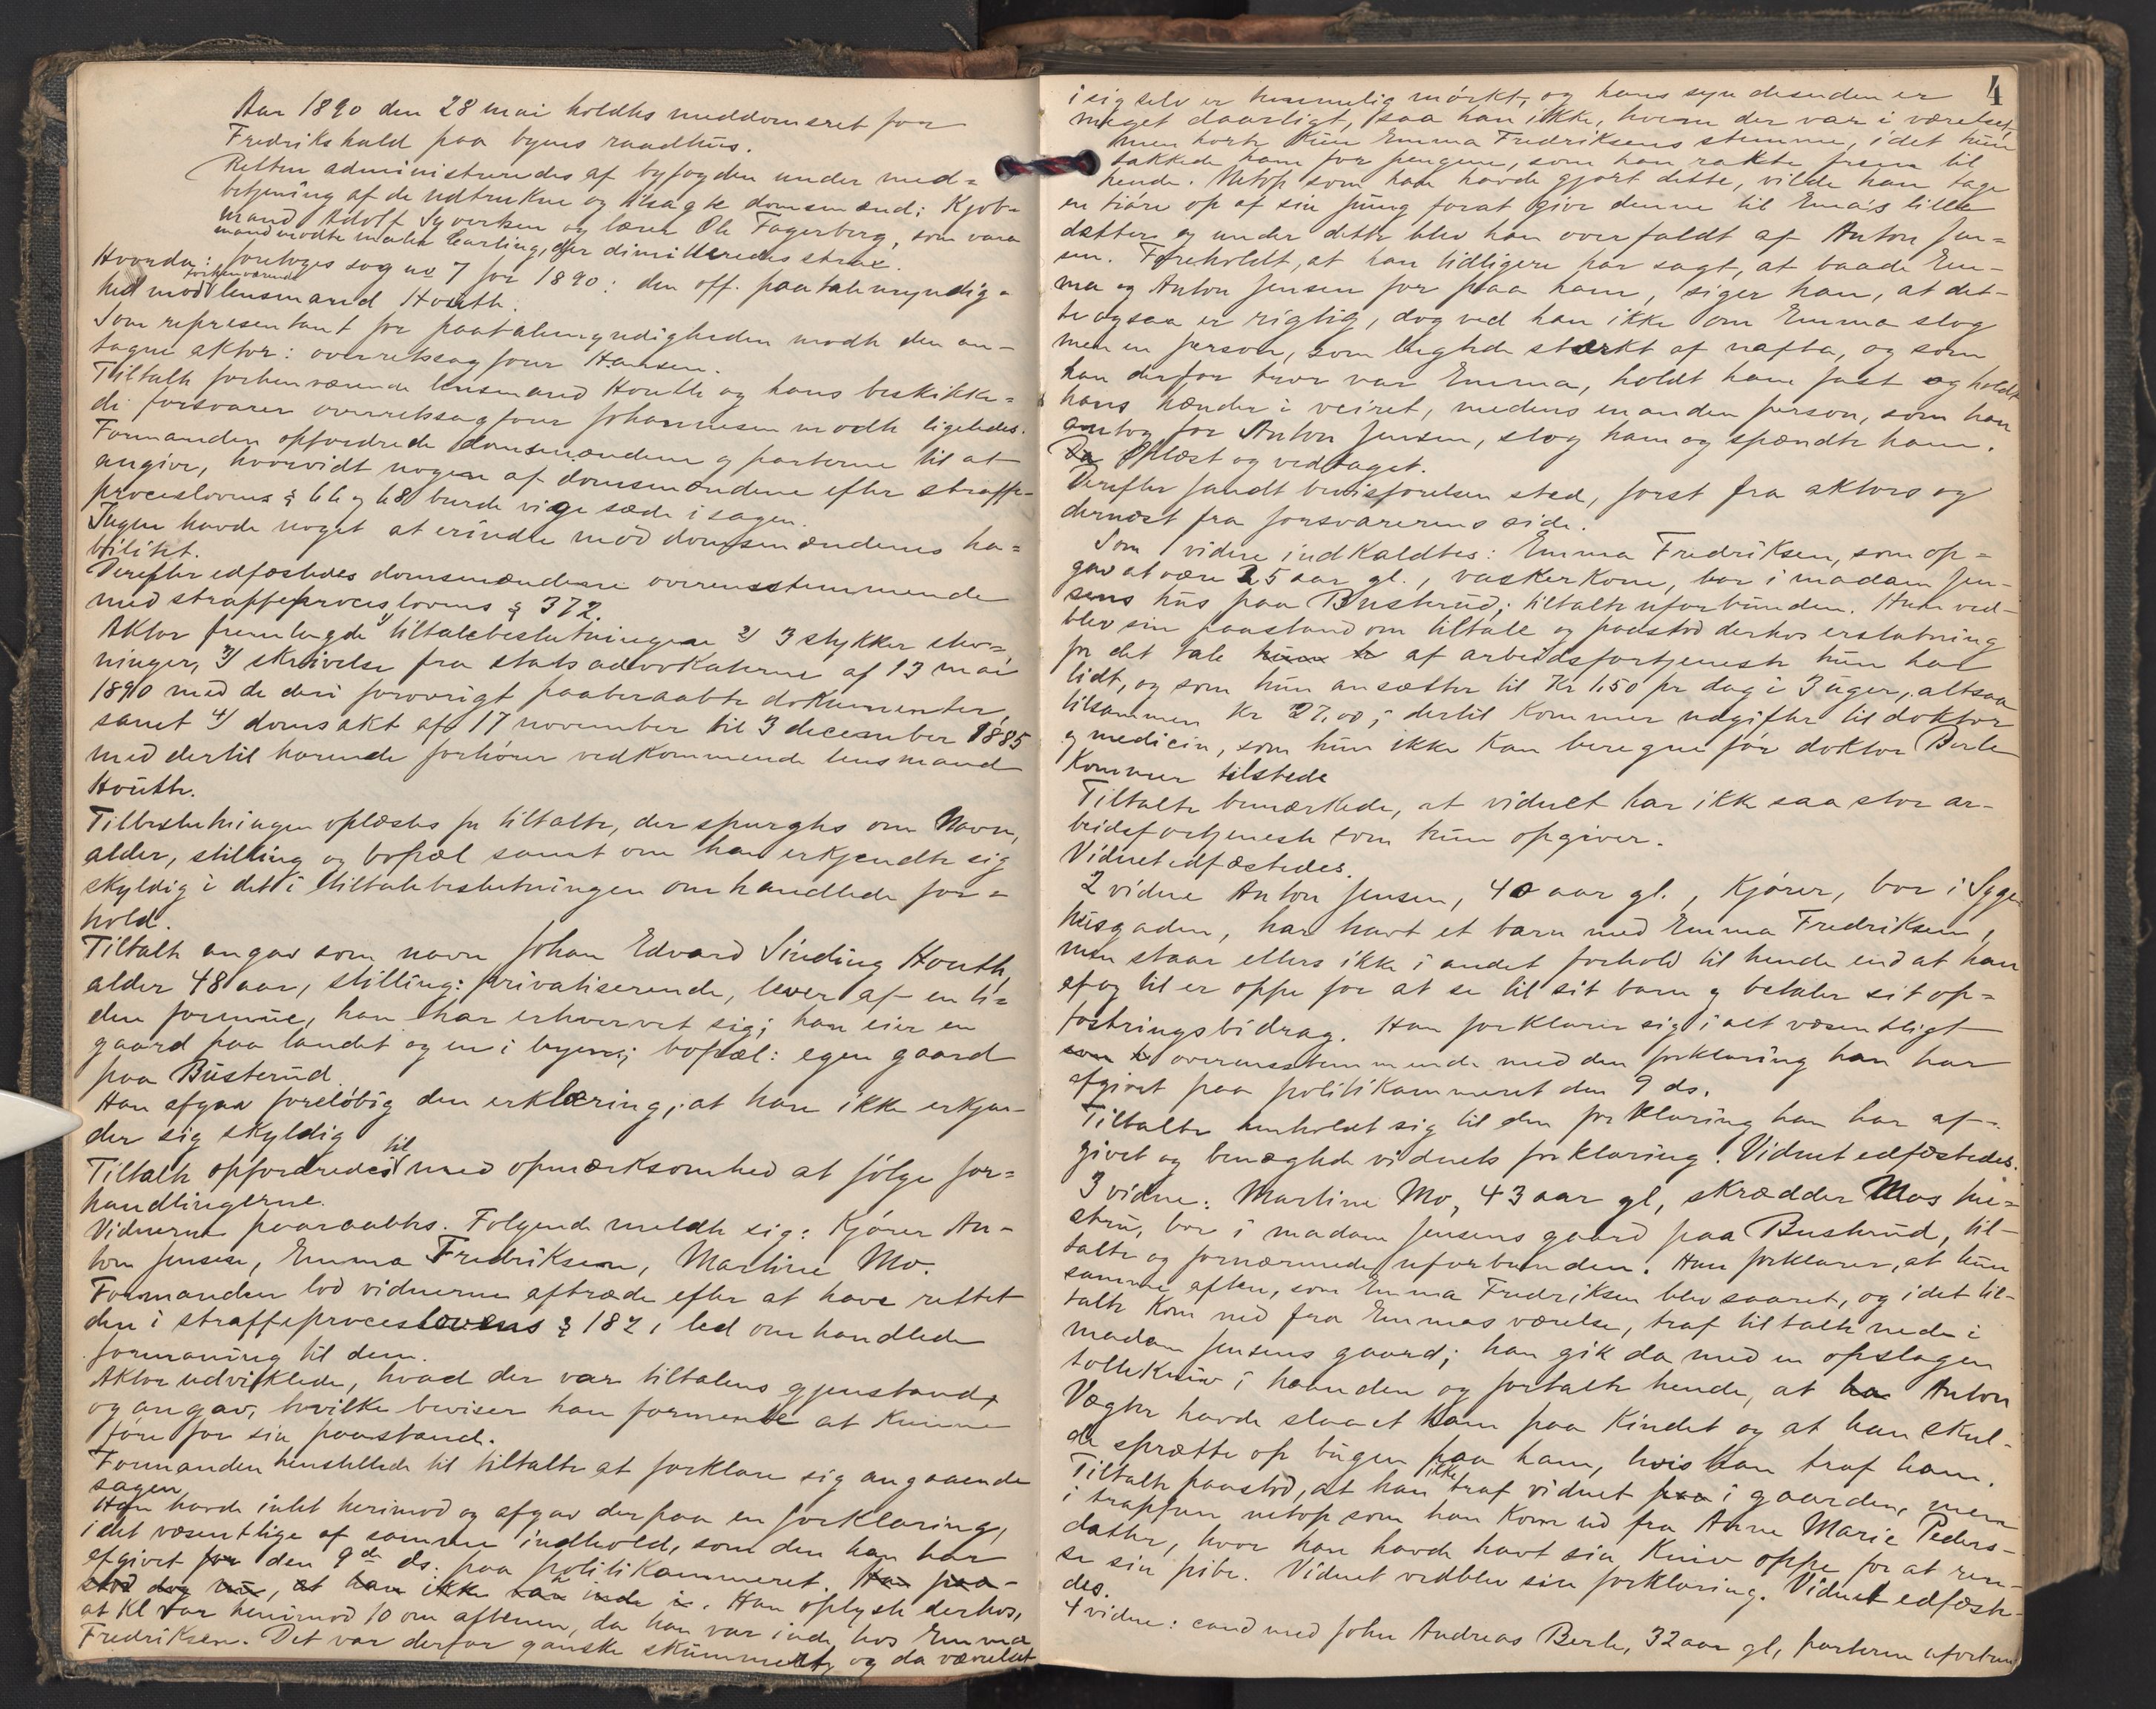 Aar 1890 den 28 mai holdtes meddomsret for
Fredrikshald paa byens raadhus.
Retten administreredes af byfogden under med-
betjening af de udtrukne og tilsagte domsmænd: Kjøb-
mand Adolf Syversen og lærer Ole Fagerberg, som vara
mand mødte maler Carling, der dimitteredes strax.
Hvorda: foretoges sag no 7 for 1890: den off. paatalemyndig-
hed mod forhenværende lensmand Houth.
Som representant for paatalemyndigheden mødte den an-
tagne aktor: overretssagfører Hansen.
Tiltalte forhenværende lensmand Houth og hans beskikke-
de forsvarer overretssagfører Johannesen mødte ligeledes.
Formanden opfordrede domsmændene og parterne til at
angive, hvorvidt nogen af domsmændene efter straffe-
proceslovens § 66 og 68 burde vige sæde i sagen.
Ingen havde noget at erindre mod domsmændenes ha-
bilitet.
Derefter edfæstedes domsmændene overensstemmende
med straffeproceslovens § 372.
Aktor fremlagde 1) tiltalebeslutningen 2) 3 stykker stev-
ninger, 3) skrivelse fra statsadvokaterne af 13 mai
1890 med de deri forøvrigt paaberaabte dokumenter,
samt 4) domsakt af 17 november til 3 december 1885
med dertil hørende forhører vedkommende lensmand
Houth.
Tilbeslutningen oplæstes for tiltalte, der spurgtes om Navn,
alder, stilling og bopæl samt om han erkjendte sig
skyldig i det i tiltalebeslutningen omhandlede for-
hold.
Tiltalte angav som navn Johan Edvard Sinding Houth,
alder 48 aar, stilling: privatiserende, lever af en li-
den formue, han har erhvervet sig; han eier en
gaard paa landet og en i byen; bopæl: egen gaard
paa Busterud.
Han afgav foreløbig den erklæring, at han ikke erkjen-
der sig skyldig
Tiltalte opfordredes til med opmærksomhed at følge for-
handlingerne.
Vidnerne paaraabtes. Følgende meldte sig: Kjører An-
ton Jensen, Emma Fredriksen, Martine Mo.
Formanden lod vidnerne aftræde efter at have rettet
den i straffeproceslovens § 182 1 led omhandlede
formaning til dem.
Aktor udviklede, hvad der var tiltalens gjenstand,
og angav, hvilke beviser han formente at kunne
føre for sin paastand.
Formanden henstillede til tiltalte at forklare sig angaaende
sagen
Han havde intet herimod og afgav derpaa en forklaring,
i det væsentlige af samme indhold, som den han har
afgivet for den 9de ds. paa politikammeret. Han paa-
stod dog nu, at han ikke var inde i. Han oplyste derhos,
at Kl var henimod 10 om aftenen, da han var inde hos Emma
Fredriksen. Det var derfor ganske skummelt, og da værelset
4
i sig selv er temmelig mørkt, og hans syn desuden er
meget daarligt, saa han ikke, hvem der var i værelset,
men hørte kun Emma Fredriksens stemme, idet hun
takkede ham for pengene, som han rakte frem til
hende. Netop som han havde gjort dette, vilde han tage
en tiøre op af sin pung forat give denne til Ema's lille
datter og under dette blev han overfaldt af Anton Jen-
sen. Foreholdt, at han tidligere har sagt, at baade Em-
ma og Anton Jensen før paa ham, siger han, at det-
te ogsaa er rigtig, dog ved han ikke om Emma slog
men en person, som lugtede stærkt af nafta, og som
han derfor tror var Emma, holdt ham fast og holdt
hans hænder i veiret, medens en anden person, som han
antog for Anton Jensen, slog ham og spændte ham.
Da Oplæst og vedtaget.
Derefter fandt bevisførelsen sted, først fra aktors og
dernæst fra forsvarerens side.
Som vidne indkaldtes: Emma Fredriksen, som op-
gav at være 25 aar gl., vaskerkone, bor i madam Jen-
sens hus paa Busterud; tiltalte uforbunden. Hun ved-
blev sin paastand om tiltale og paastod derhos erstatning
for det tab af arbeidsfortjeneste hun har
lidt, og som hun ansætter til Kr 1,50 pr dag i 3 uger, altsaa
tilsammen Kr 27,00; dertil kommer udgifter til doktor
og medicin, som hun ikke kan beregne før doktor Berle
kommer tilstede
Tiltalte bemærkede, at vidnet har ikke saa stor ar-
beidsfortjeneste som hun opgiver.
Vidnet edfæstedes.
2 vidne Anton Jensen, 40 aar gl., Kjører, bor i Syge
husgaden, har havt et barn med Emma Fredriksen,
men staar ellers ikke i andet forhold til hende end at han
af og til er oppe for at se til sit barn og betaler sit op-
fostringsbidrag. Han forklarer sig i alt væsentligt
overensstemmende med den forklaring han har
afgivet paa politikammeret den 9 ds.
Tiltalte henholdt sig til den forklaring han har af-
givet og benægtede vidnets forklaring. Vidnet edfæstedes.
3 vidne: Martine Mo, 43 aar gl, skrædder Mos hu-
stru, bor i madam Jensens gaard paa Busterud, til-
talte og fornærmede uforbunden. Hun forklarer, at hun
samme aften, som Emma Fredriksen blev saaret, og idet til-
talte kom ned fra Emmas værelse, traf tiltalte nede i
madam Jensens gaard; han gik da med en opslagen
tollekniv i haanden og fortalte hende, at ha Anton
Vægter havde slaaet ham paa kindet og at han skul-
de sprætte op bugen paa ham, hvis han traf ham.
Tiltalte paastod, at han ikke traf vidnet paa i gaarden, men
i trappen netop som han kom ud fra Anne Marie Peders-
datter, hvor han havde havt sin kniv oppe for at ren-
se sin pibe. Vidnet vedblev sin forklaring. Vidnet edfæste-
des.
4 vidne: cand med John Andreas Berle, 32 aar gl, parterne uforbun